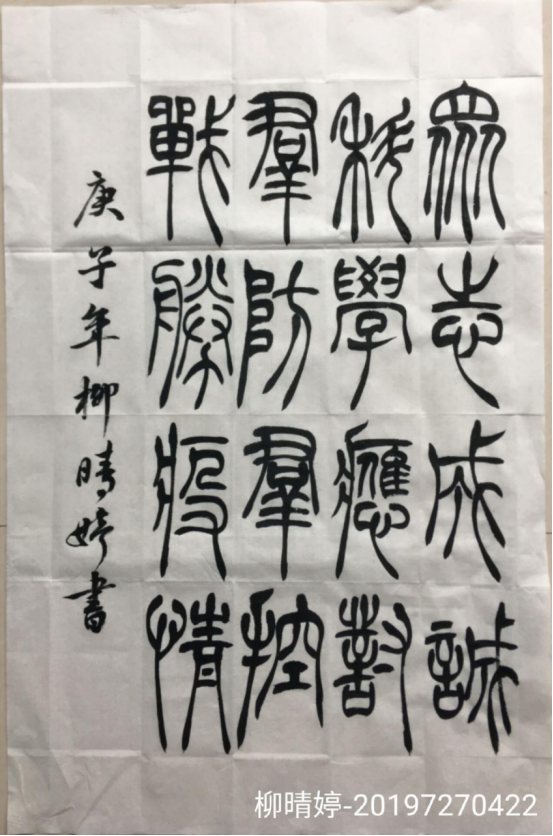 眾志成誠
科學應對
羣防羣控
戰勝疫情
庚子年柳晴婷書
柳晴婷-20197270422